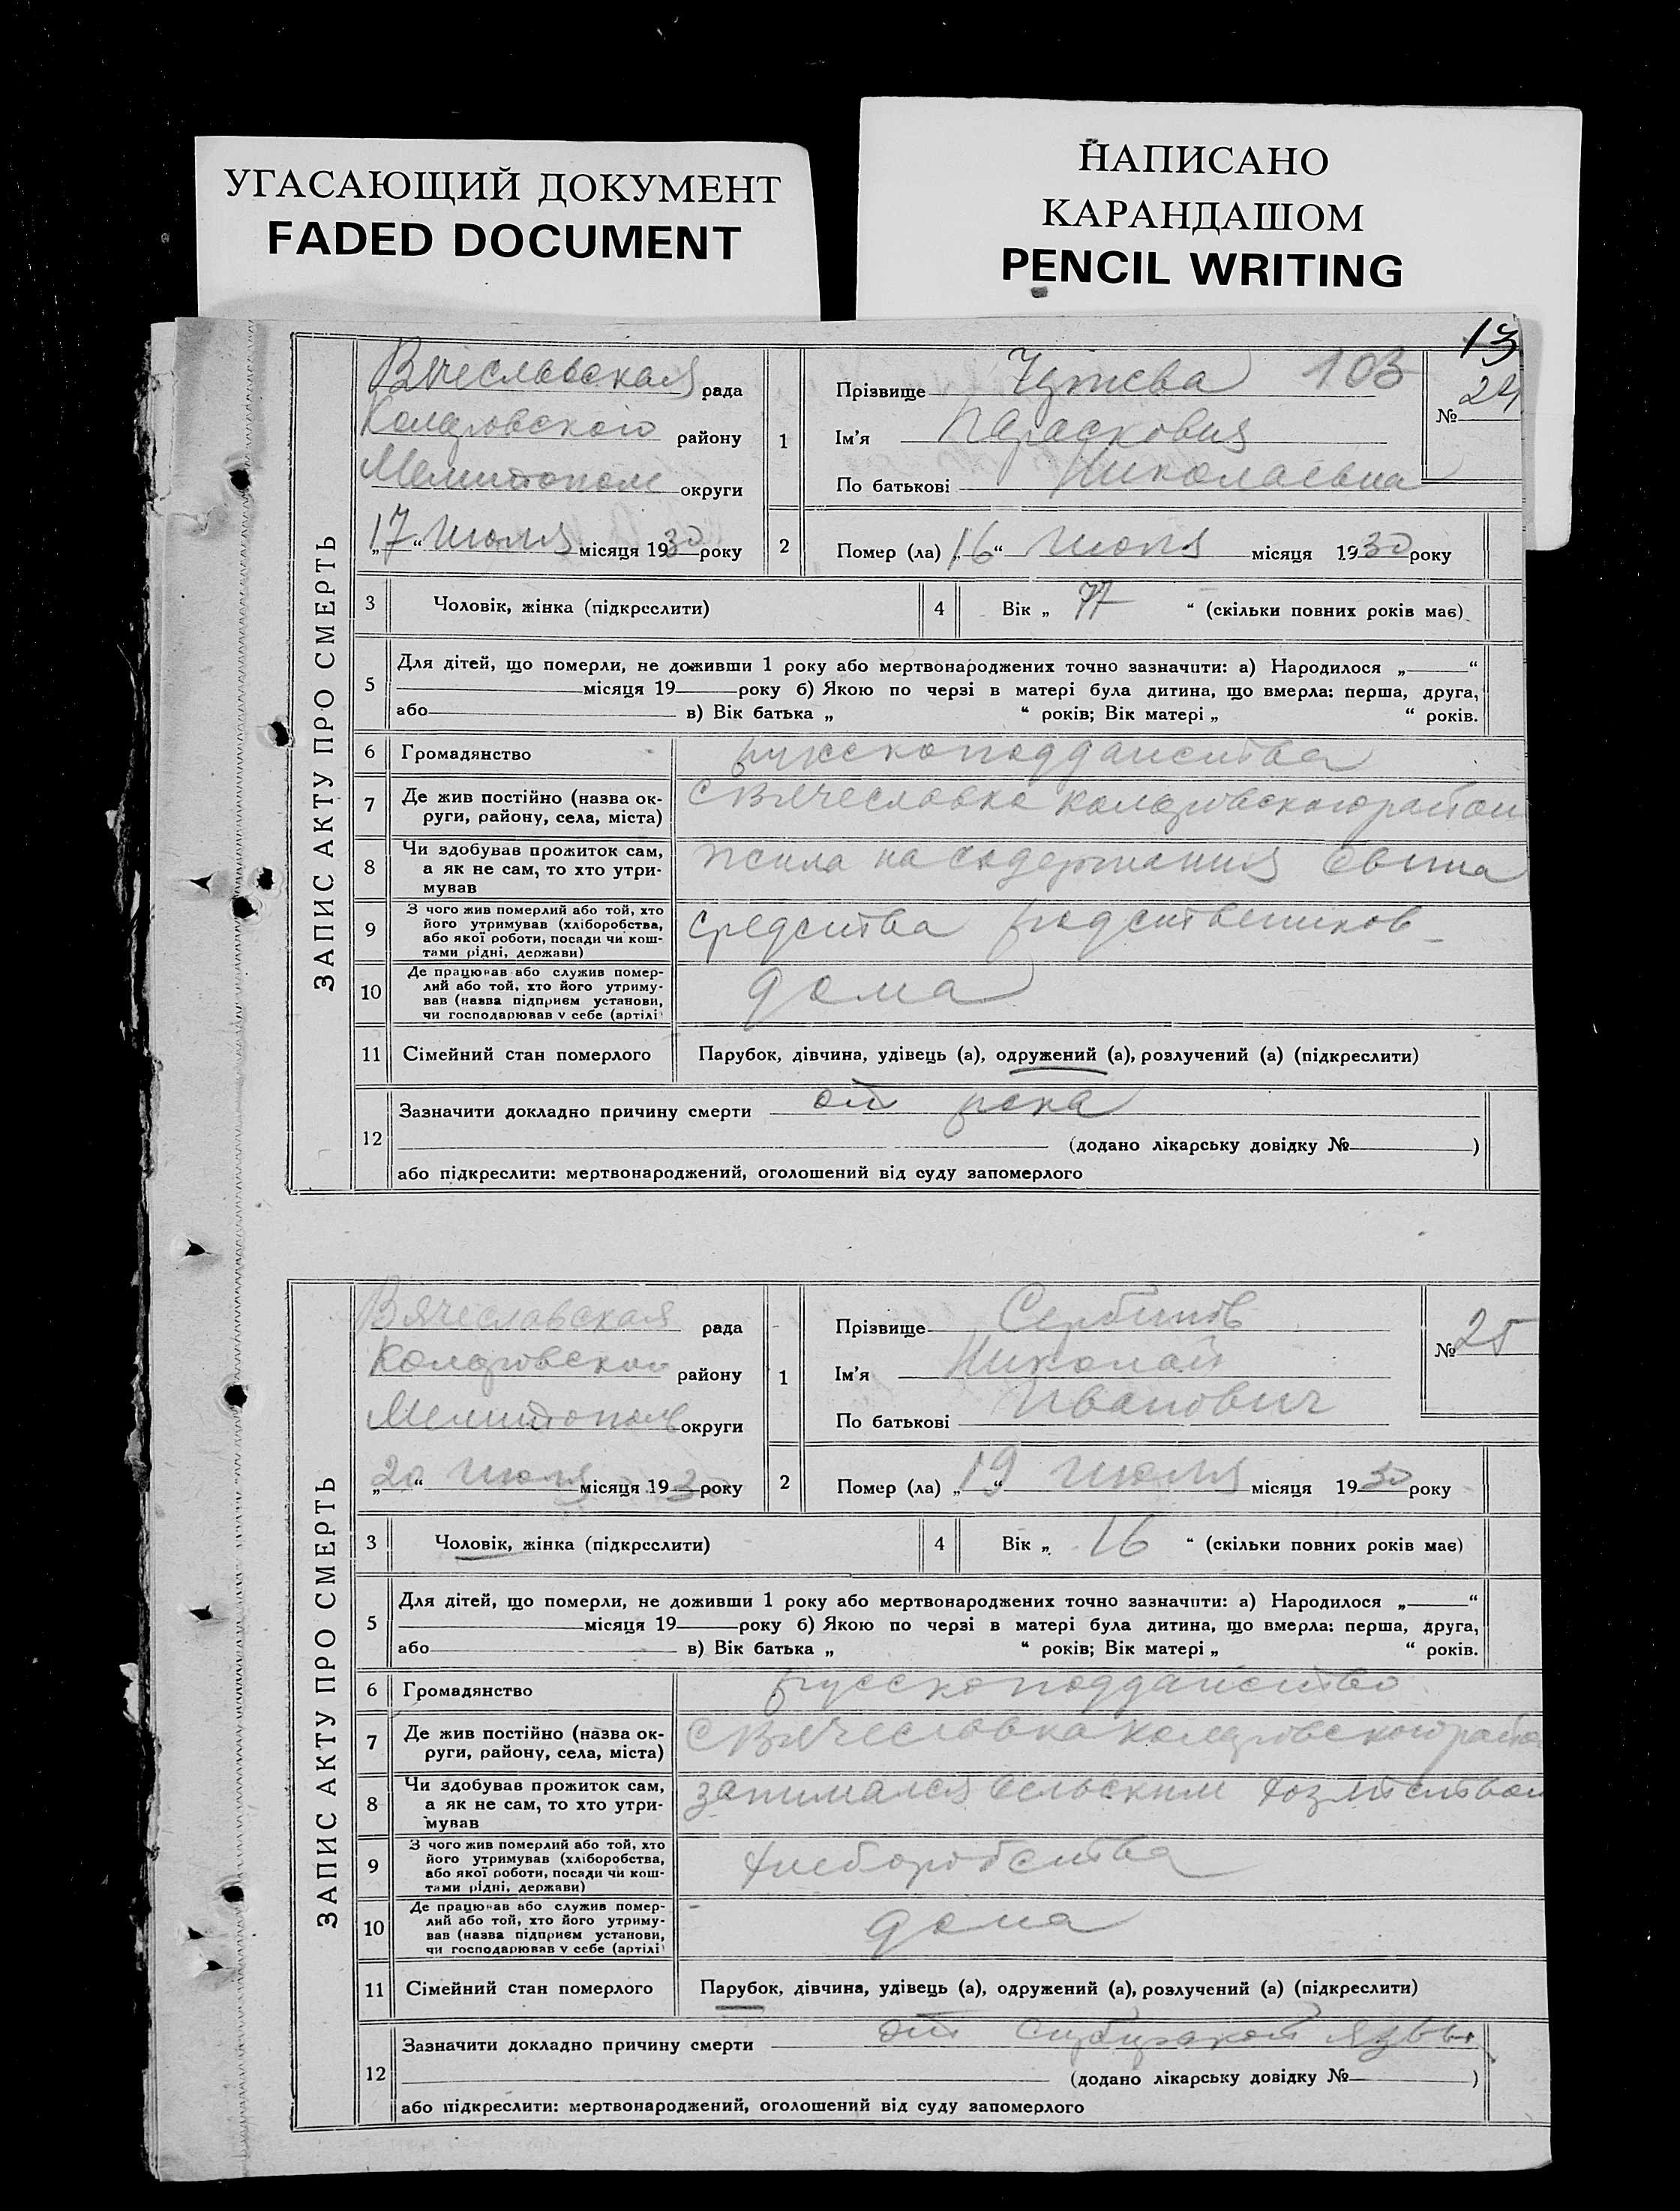 УГАСАЮЩИЙ ДОКУМЕНТ
FADED DOCUMENT
НАПИСАНО
КАРАНДАШОМ
PENCIL WRITING
13
ЗАПИС АКТУ ПРО СМЕРТЬ
Вячеславская рада
району
Мелитополь округи
„17“ июля місяця 1930 року
1
Прізвище 103
Ім'я Парасковия
По батькові Николаевна
№ 24
2
Помер (ла) „16“ июля місяця 1930 року
3 Чоловік, жінка (підкреслити)
4 Вік „ 77 “ (скільки повних років має)
5 Для дітей, що померли, не доживши 1 року або мертвонароджених точно зазначити: а) Народилося „ “
місяця 19 року б) Якою по черзі в матері була дитина, що вмерла: перша, друга,
або в) Вік батька „ “ років; Вік матері „ “ років.
6 Громадянство русскоподданства
7 Де жив постійно (назва ок-
руги, району, села, міста)
с Вячеславка
8 Чи здобував прожиток сам,
а як не сам, то хто утри-
мував
жила на содержания сына
9 З чого жив померлий або той, хто
його утримував (хліборобства,
або якої роботи, посади чи кош-
тами рідні, держави)
средства родствеников
10 Де працював або служив помер-
лий або той, хто його утриму-
вав (назва підприєм установи,
чи господарював у себе (артілі)
дома
11 Сімейний стан померлого Парубок, дівчина, удівець (а), одружений (а), розлучений (а) (підкреслити)
12 Зазначити докладно причину смерти от рака
(додано лікарську довідку № )
або підкреслити: мертвонароджений, оголошений від суду запомерлого
ЗАПИС АКТУ ПРО СМЕРТЬ
Вячеславская рада
району
Мелитополь округи
„20“ июля місяця 1930 року
1
Прізвище Сербинов
Ім'я Николай
По батькові Иванович
№ 25
2
Помер (ла) „19“ июля місяця 1930 року
3 Чоловік, жінка (підкреслити)
4 Вік „ 16 “ (скільки повних років має)
5 Для дітей, що померли, не доживши 1 року або мертвонароджених точно зазначити: а) Народилося „ “
місяця 19 року б) Якою по черзі в матері була дитина, що вмерла: перша, друга,
або в) Вік батька „ “ років; Вік матері „ “ років.
6 Громадянство русскоподданство
7 Де жив постійно (назва ок-
руги, району, села, міста)
с Вячеславка
8 Чи здобував прожиток сам,
а як не сам, то хто утри-
мував
занимался сельским
9 З чого жив померлий або той, хто
його утримував (хліборобства,
або якої роботи, посади чи кош-
тами рідні, держави)
хлеборобства
10 Де працював або служив помер-
лий або той, хто його утриму-
вав (назва підприєм установи,
чи господарював у себе (артілі)
дома
11 Сімейний стан померлого Парубок, дівчина, удівець (а), одружений (а), розлучений (а) (підкреслити)
12 Зазначити докладно причину смерти от язвы
(додано лікарську довідку № )
або підкреслити: мертвонароджений, оголошений від суду запомерлого